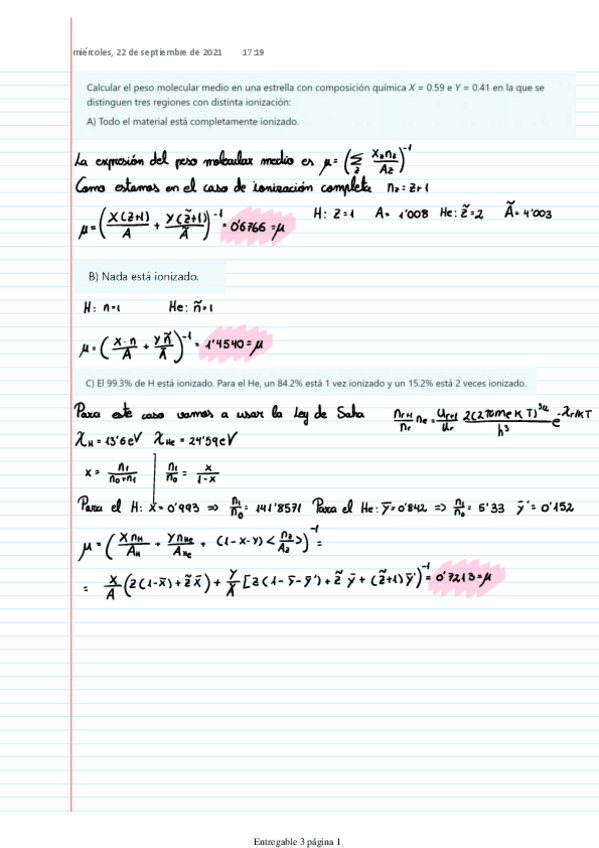 miércoles, 22 de septiembre de 2021 17:19
Calcular el peso molecular medio en una estrella con composición química X = 0.59 e Y = 0.41 en la que se
distinguen tres regiones con distinta ionización:
A) Todo el material está completamente ionizado.
La expresión del peso molecular medio es μ = (Σ_z X_z n_z / A_z)^-1
Como estamos en el caso de ionización completa n_z = z+1
μ = (X(z+1)/A + Y(z̃+1)/Ã)^-1 = 0'6766 = μ H: z=1 A = 1'008 He: z̃=2 Ã = 4'003
B) Nada está ionizado.
H: n=1 He: ñ=1
μ = (X·n/A + Yñ/Ã)^-1 = 1'4540 = μ
C) El 99.3% de H está ionizado. Para el He, un 84.2% está 1 vez ionizado y un 15.2% está 2 veces ionizado.
Para este caso vamos a usar la Ley de Saha n_r+1/n_r n_e = u_r+1/u_r 2(2πm_e K T)^3/2 / h^3 e^-χ_r/KT
χ_H = 13'6 eV χ_He = 24'59 eV
x = n_1/(n_0+n_1) n_1/n_0 = x/(1-x)
Para el H: x̄ = 0'993 ⇒ n_1/n_0 = 141'8571 Para el He: ȳ = 0'842 ⇒ n_1/n_0 = 5'33 ȳ' = 0'152
μ = (X n_H/A_H + Y n_He/A_He + (1-X-Y) < n_z/A_z >)^-1 =
= X/A (z(1-x̄) + z̃ x̄) + Y/Ã [z(1-ȳ-ȳ') + z̃ ȳ + (z̃+1) ȳ')^-1 = 0'7213 = μ
Entregable 3 página 1